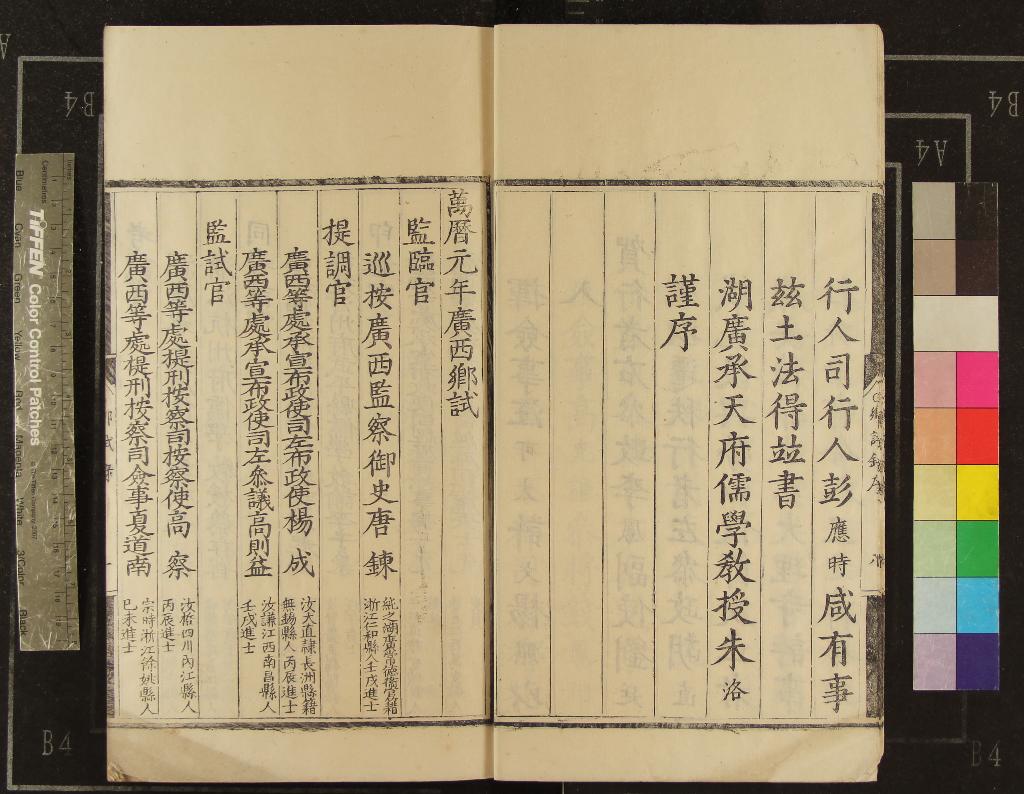 行人司行人彭應時咸有事
玆土法得竝書
湖廣承天府儒學教授朱洛
謹序
萬曆元年廣西鄉試
監臨官
巡按廣西監察御史唐鍊
純之湖廣常德衛官籍
浙江仁和縣人壬戌進士
提調官
廣西等處承宣布政使司左布政使楊成
汝大直隸長洲縣籍
無錫縣人丙辰進士
廣西等處承宣布政使司左叅議高則益
汝謙江西南昌縣人
壬戌進士
監試官
廣西等處提刑按察司按察使高察
汝恪四川內江縣人
丙辰進士
廣西等處提刑按察司僉事夏道南
宗時浙江餘姚縣人
己未進士
TIFFEN Color Control Patches
B4
B4
B4
B4
A4